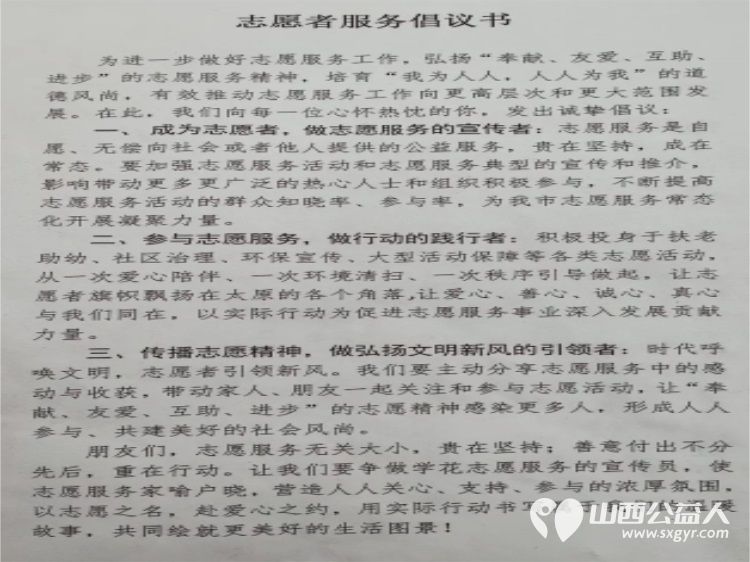 志愿者服务倡议书
为进一步做好志愿服务工作，弘扬“奉献、友爱、互助、
进步”的志愿服务精神，培育“我为人人，人人为我”的道
德风尚，有效推动志愿服务工作向更高层次和更大范围发
展。在此，我们向每一位心怀热忱的你，发出诚挚倡议：
一、成为志愿者，做志愿服务的宣传者：志愿服务是自
愿、无偿向社会或者他人提供的公益服务，贵在坚持，成在
常态。要加强志愿服务活动和志愿服务典型的宣传和推介，
影响带动更多更广泛的热心人士和组织积极参与，不断提高
志愿服务活动的群众知晓率、参与率，为我市志愿服务常态
化开展凝聚力量。
二、参与志愿服务，做行动的践行者：积极投身于扶老
助幼、社区治理、环保宣传、大型活动保障等各类志愿活动，
从一次爱心陪伴、一次环境清扫、一次秩序引导做起，让志
愿者旗帜飘扬在太原的各个角落，让爱心、善心、诚心、真心
与我们同在，以实际行动为促进志愿服务事业深入发展贡献
力量。
三、传播志愿精神，做弘扬文明新风的引领者：时代呼
唤文明，志愿者引领新风。我们要主动分享志愿服务中的感
动与收获，带动家人、朋友一起关注和参与志愿活动，让“奉
献、友爱、互助、进步”的志愿精神感染更多人，形成人人
参与、共建美好的社会风尚。
朋友们，志愿服务无关大小，贵在坚持；善意付出不分
先后，重在行动。让我们要争做学花志愿服务的宣传员，使
志愿服务家喻户晓，营造人人关心、支持、参与的浓厚氛围，
以志愿之名，赴爱心之约，用实际行动书写
故事，共同绘就更美好的生活图景！
山西公益人
www.sxgyr.com